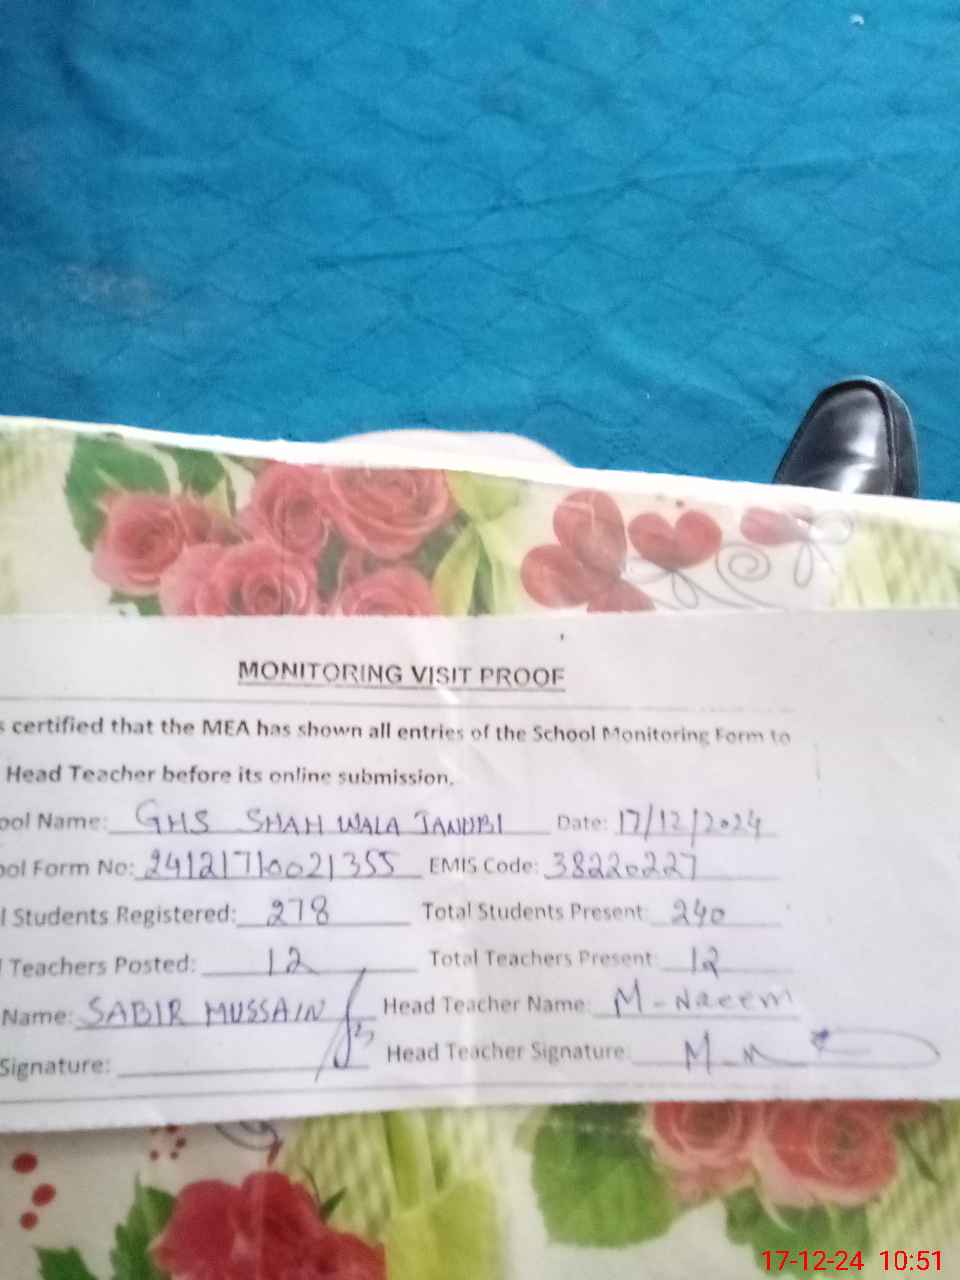 MONITORING VISIT PROOF
s certified that the MEA has shown all entries of the School Monitoring Form to
Head Teacher before its online submission.
ool Name: GHS SHAH WALA JANUBI Date: 17/12/2024
ool Form No: 24121710021355 EMIS Code: 38220227
l Students Registered: 278 Total Students Present: 240
l Teachers Posted: 12 Total Teachers Present: 12
Name: SABIR HUSSAIN Head Teacher Name: M-Naeem
Signature: Head Teacher Signature: M-N
17-12-24 10:51